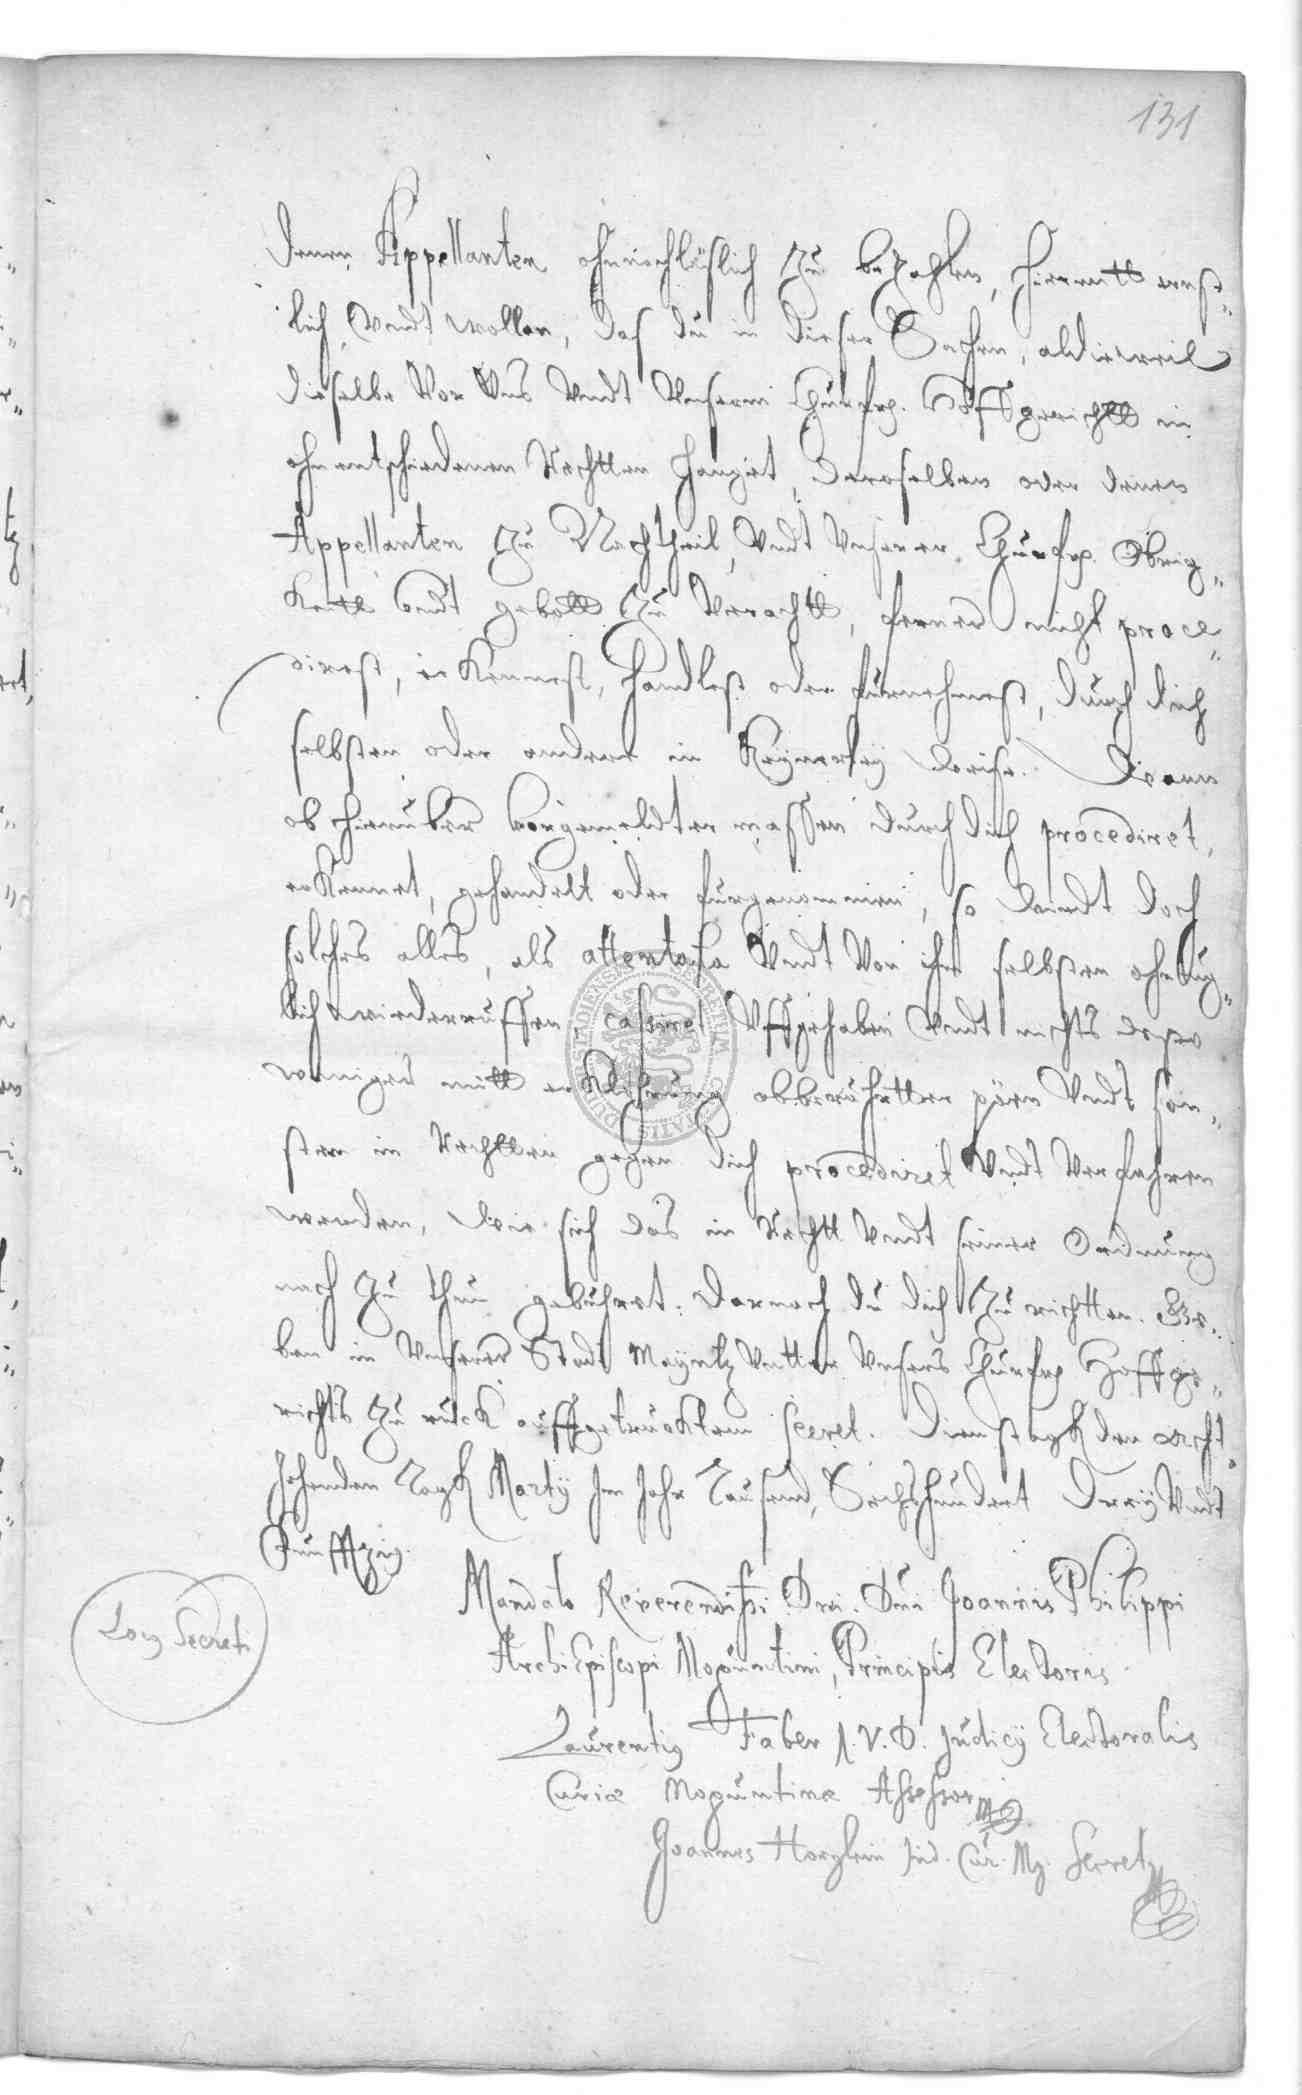 131
denen Appellanten ohnnachläslich zu bezahlen, hiemitt ernst„
lich, vndt wollen, das du in dieser Sachen, aldieweil
dieselbe vor vns vndt vnserm Churfrg. Hoffgerichtt in
ohnentschiedenen Rechtten hangtet, deroselben oder denen
Appellanten zu Nachtheil, vndt vnserer Churfrg. Obrig„
keitt vndt gebott zu verachtt, ferner nicht proce„
direst, erkennest, handlest oder fürnehmest, durch dich
selbsten oder andere in keynerley weise. Dann
ob hierüber vorgemeldter massen durch dich procediret,
erkennet, gehandelt oder fürgenommen, so wirdt doch
solches alles, als attentata vndt von ihr selbsten ohntüg„
lich wiederruffen, cassiret vffgehaben vndt nichts desto
weniger mitt erklehrung obberührtter pöen vndt son„
sten in Rechtten gegen dich procediret vndt verfahren
werden, wie sich das in Rechtt vndt seiner Ordnung
nach zu thun gebühret. Darnach du dich zu richtten. Ge„
ben in vnserer Stadt Mayntz vntter vnsers Churfrg Hoffge„
richts zu ruck auffgetrucktem Secret. Dienstagk den acht„
zehenden Tagk Martij Im Jahr Tausend, Sechshundert Dreÿ vndt
Funfftzig.
Locus Secreti
Mandato Reverendissi Dni. Dni Joannis Philippi
ArchiEpiscopi Moguntini, Principis Electoris
Laurentius Faber J.V.D. Judicÿ Electoralis
Curiæ Moguntinæ Assessor
Joannes Jud. Cur. Mog. Secret